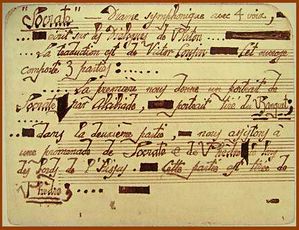 "Socrate" — Drame Symphonique avec 4 voix,
écrit sur les Dialogues de Platon
La traduction est de Victor Cousin Cet ouvrage
comporte 3 parties :
La première nous donne un portrait de
Socrate par Alcibiade portrait tiré du Banquet ;
dans la deuxième partie, nous assistons à
une promenade de Socrate & de Phèdre le long
des bords de l'Ilissus Cette partie est tirée de
Phèdre ;